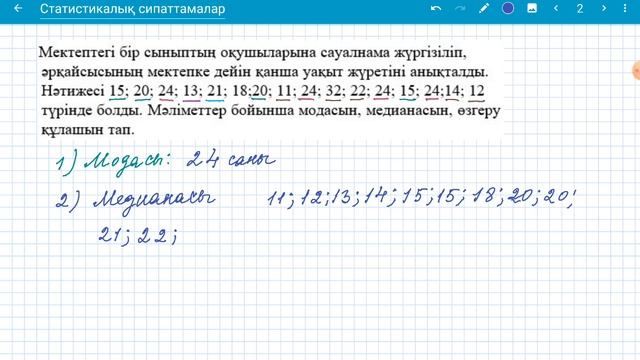 Статистикалық сипаттамалар
2
Мектептегі бір сыныптың оқушыларына сауалнама жүргізіліп,
әрқайсысының мектепке дейін қанша уақыт жүретіні анықталды.
Нәтижесі 15; 20; 24; 13; 21; 18;20; 11; 24; 32; 22; 24; 15; 24;14; 12
түрінде болды. Мәліметтер бойынша модасын, медианасын, өзгеру
құлашын тап.
1) Модасы: 24 саны
2) Медианасы 11; 12; 13; 14; 15; 15; 18; 20; 20;
21; 22;